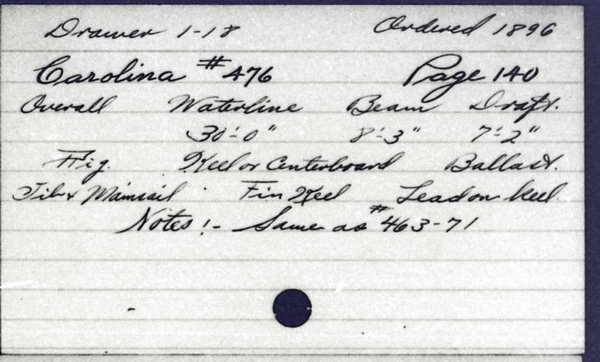 Drawer 1-18 Ordered 1896
Carolina #476 Page 140
Overall Waterline Beam Draft.
30'-0" 8'-3" 7'-2"
Rig. Keel or Centerboard Ballast.
Jib & Mainsail Fin Keel Lead on keel
Notes:- Same as #463-71